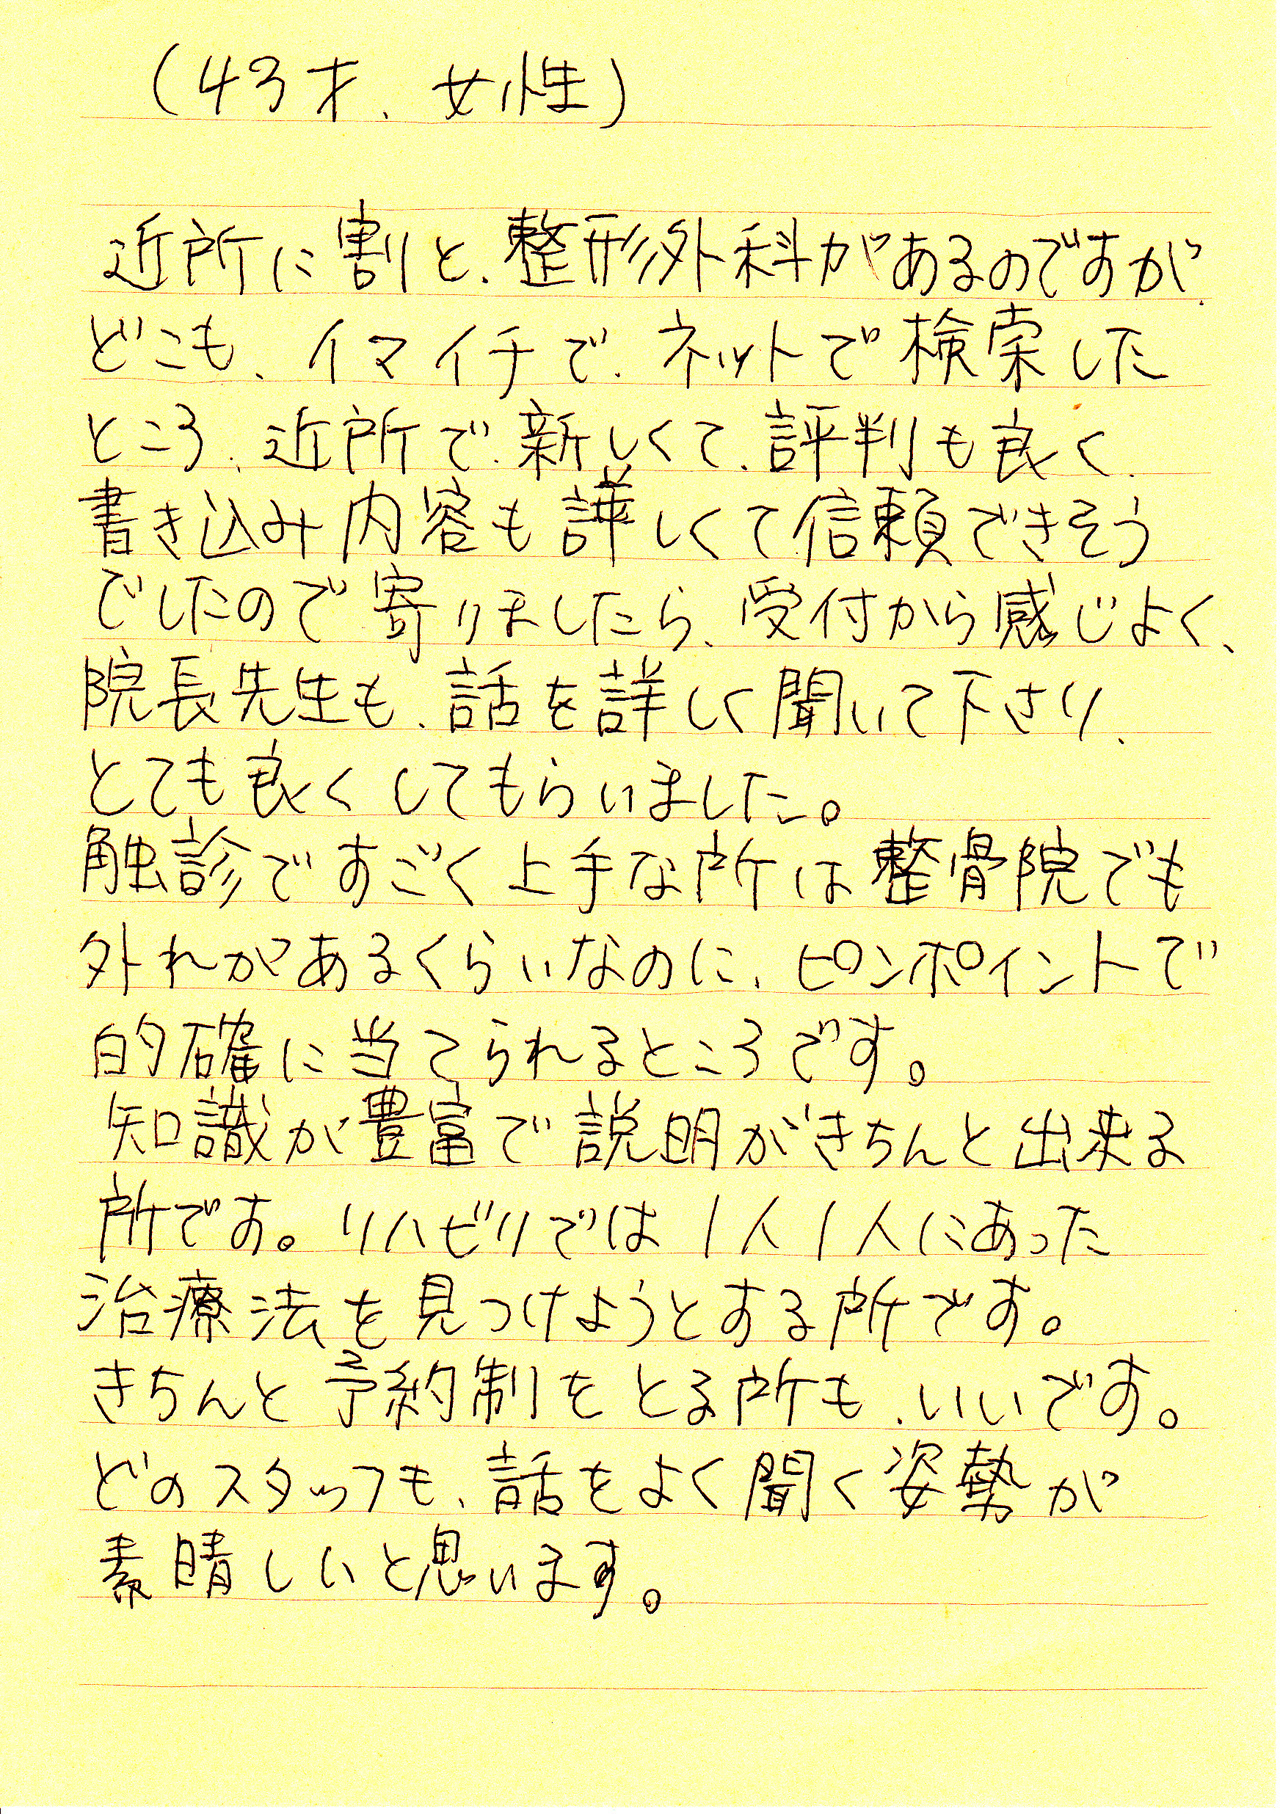 (43才、女性)
近所に割と、整形外科があるのですが、
どこも、イマイチで、ネットで検索した
ところ、近所で、新しくて、評判も良く、
書き込み内容も詳しくて信頼できそう
でしたので寄りましたら、受付から感じよく、
院長先生も、話を詳しく聞いて下さり、
とても良くしてもらいました。
触診ですごく上手な所は整骨院でも
外れがあるくらいなのに、ピンポイントで
的確に当てられるところです。
知識が豊富で説明がきちんと出来る
所です。リハビリでは1人1人にあった
治療法を見つけようとする所です。
きちんと予約制をとる所も、いいです。
どのスタッフも、話をよく聞く姿勢が
素晴しいと思います。